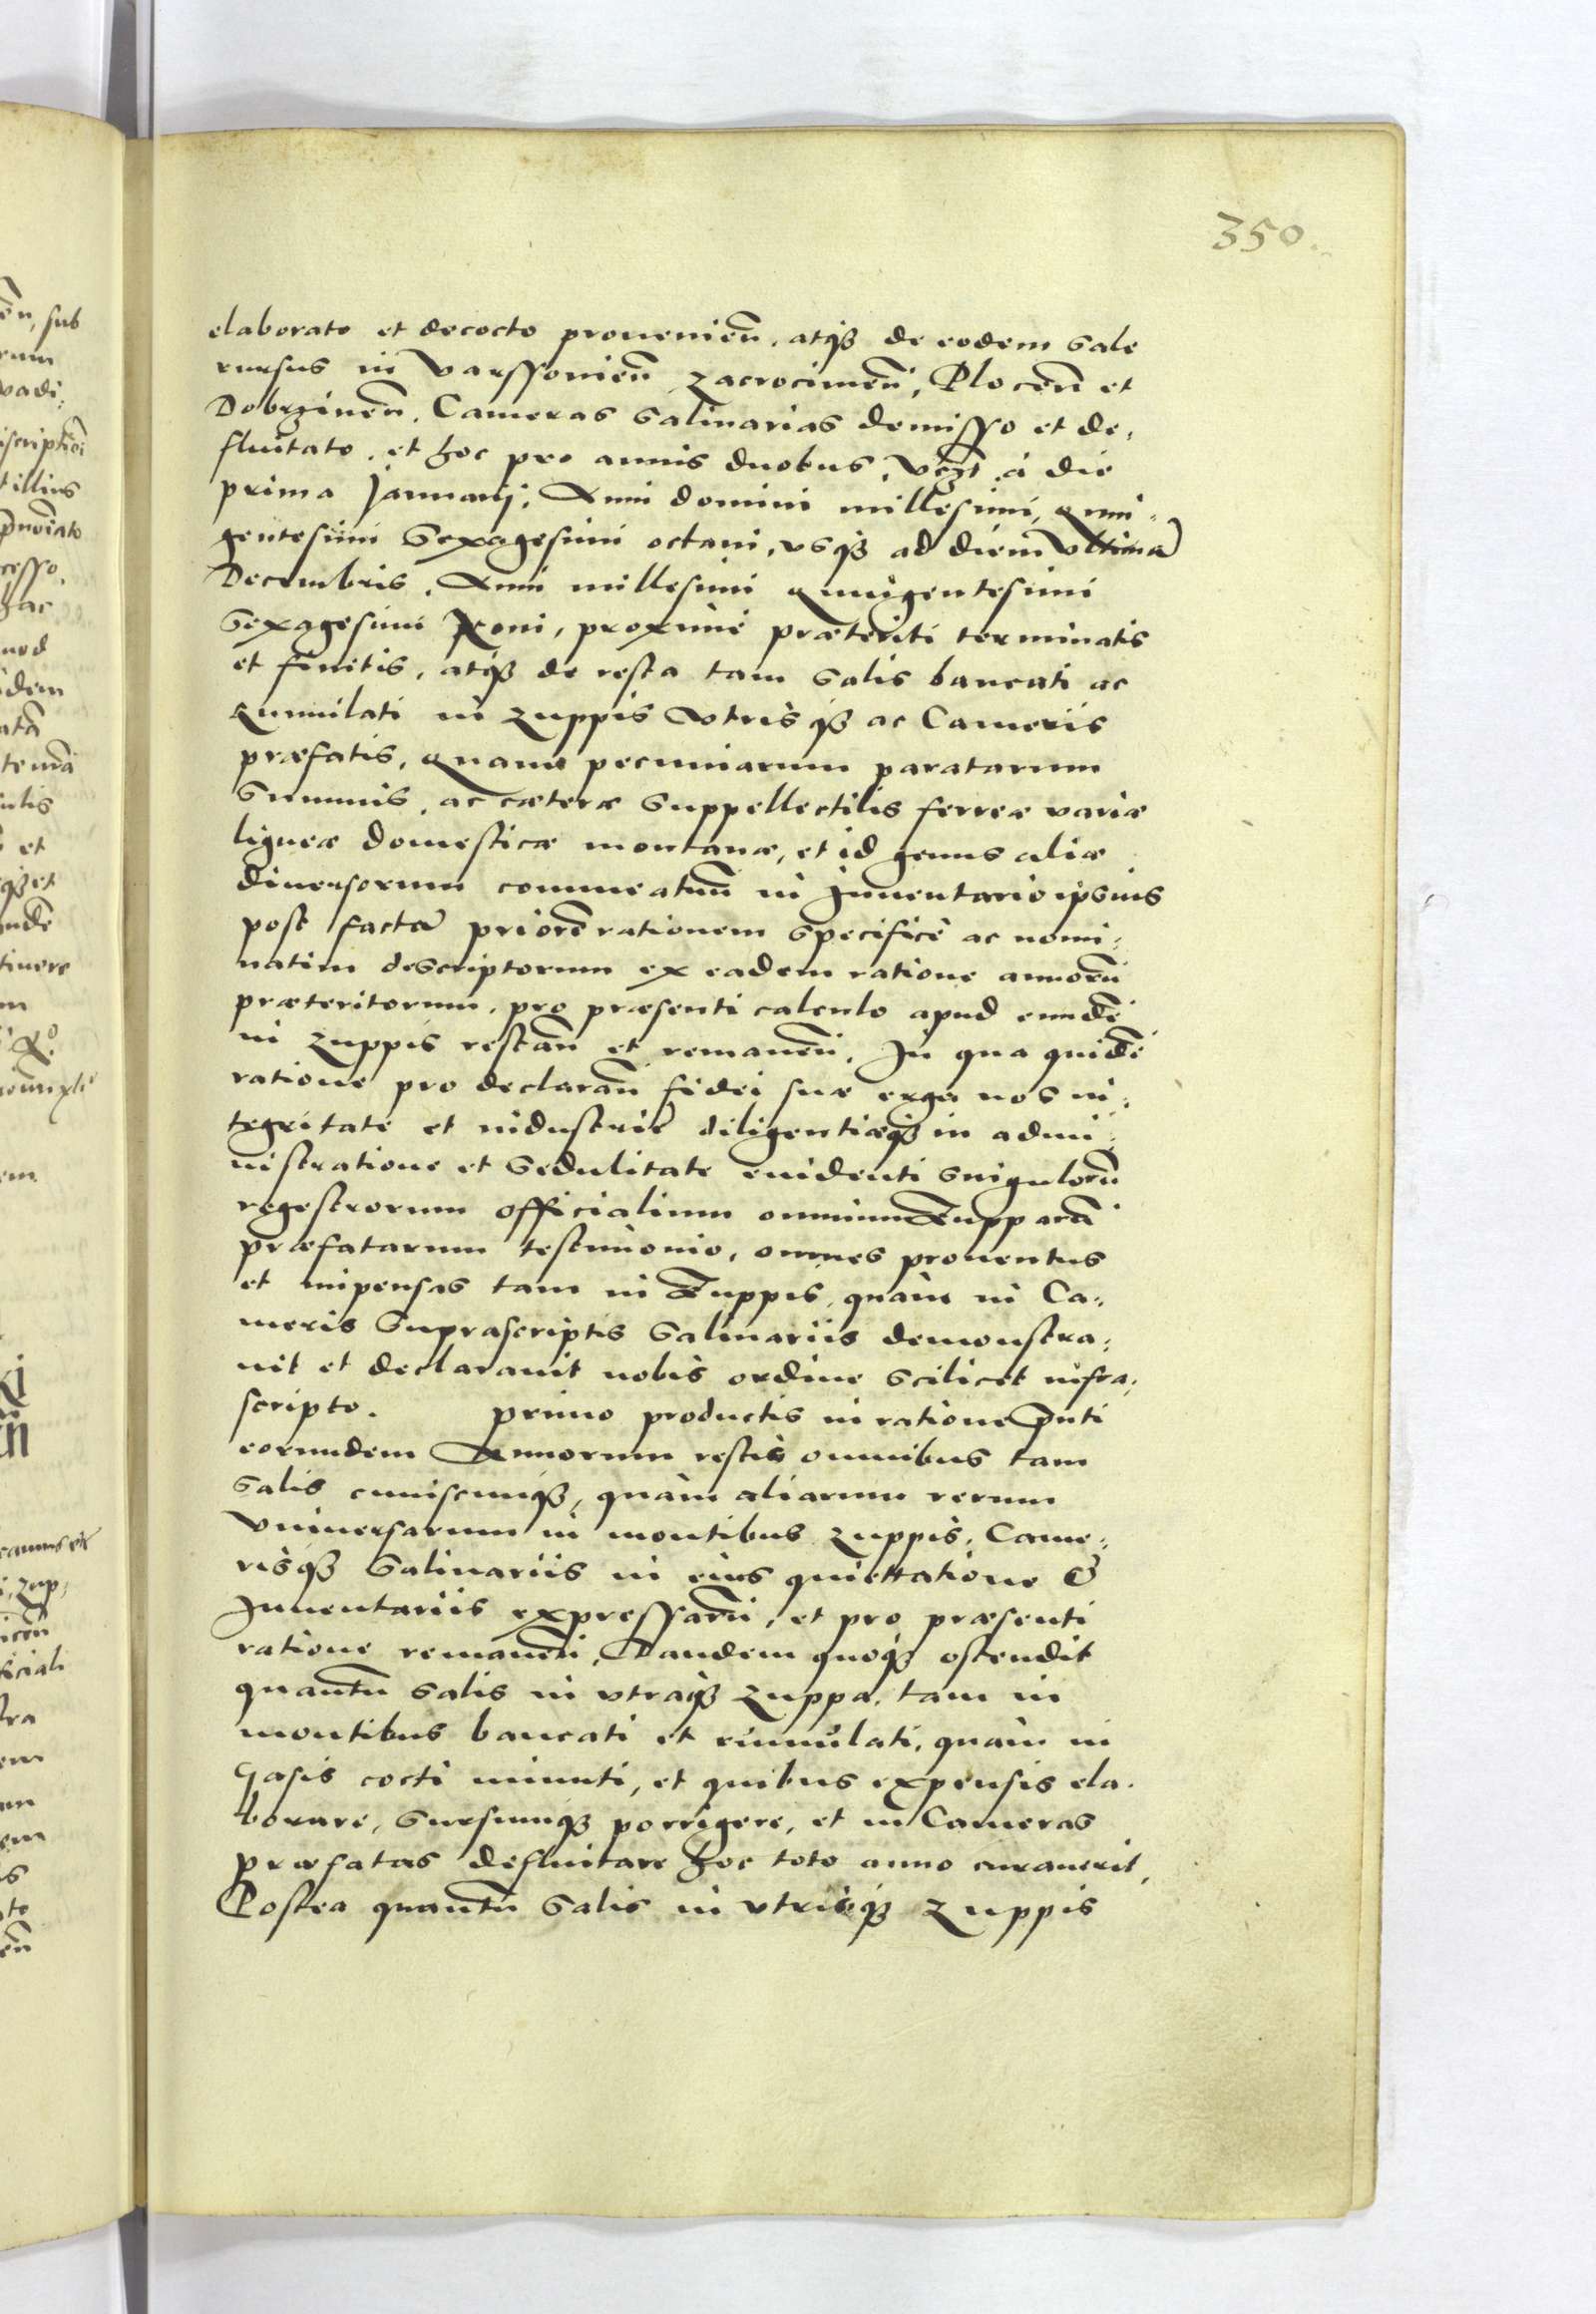 350.
elaborato et decocto prouenień. atq₃ de eodem Sale
rursus in Varssouień Zacrocimeń, Ploceń et
Dobrzineń. Cameras Salinarias demisso et de,
fluitato, et hoc pro annis duobus, vczt. à die
prima Januarij, Anni domini millesimi, quin,
gentesimi Sexagesimi octaui, vsq₃ ad diem vltimã
Decembris. Anni millesimi quingentesimi
Sexagesimi Noni, proximè præteriti terminatis
et finitis, atq₃ de resta tam Salis bancati ac
cumulati in Zuppis vtrisq₃ ac Cameris
præfatis, quam pecuniarum paratarum
Summis, ac cæteræ Suppellectilis ferreæ variæ
ligneæ domesticæ montanæ, et id genus aliæ
diuersorum commeatuũ in Inuentario ipsius
post factã priorẽ rationem specificè ac nomi,
natim descriptorum ex eadem ratione annorũ
præteritorum, pro præsenti calculo apud eundẽ
in Zuppis restań et remaneń. In qua quidẽ
ratione pro declarań fidei suæ erga nos in,
tegritate et industriæ diligentiæq₃ in admi,
nistratione et Sedulitate euidenti Singulorũ
regestrorum officialium omnium Zupparũ
præfatarum testimonio, omnes prouentus
et impensas tam in Zuppis, quàm in Ca,
meris Suprascriptis Salinariis demonstra,
uit et declarauit nobis ordine Scilicet infra,
scripto. Primo productis in ratione p̃nti
eorundem Annorum restis omnibus tam
Salis cuiuscunq₃, quàm aliarum rerum
vniuersarum in montibus Zuppis, Came,
risq₃ Salinariis in eius quiettatione &
Inuentariis expressarũ, et pro præsenti
ratione remaneń, Tandem quoq₃ ostendit
quantũ Salis in vtraq₃ Zuppa, tam in
montibus bancati et cumulati, quàm in
Casis cocti minuti, et quibus expensis ela.
borare, Sursumq₃ porrigere, et in Cameras
præfatas defluitare hoc toto anno curauerit,
Postea quantũ Salis in vtrisq₃ Zuppis